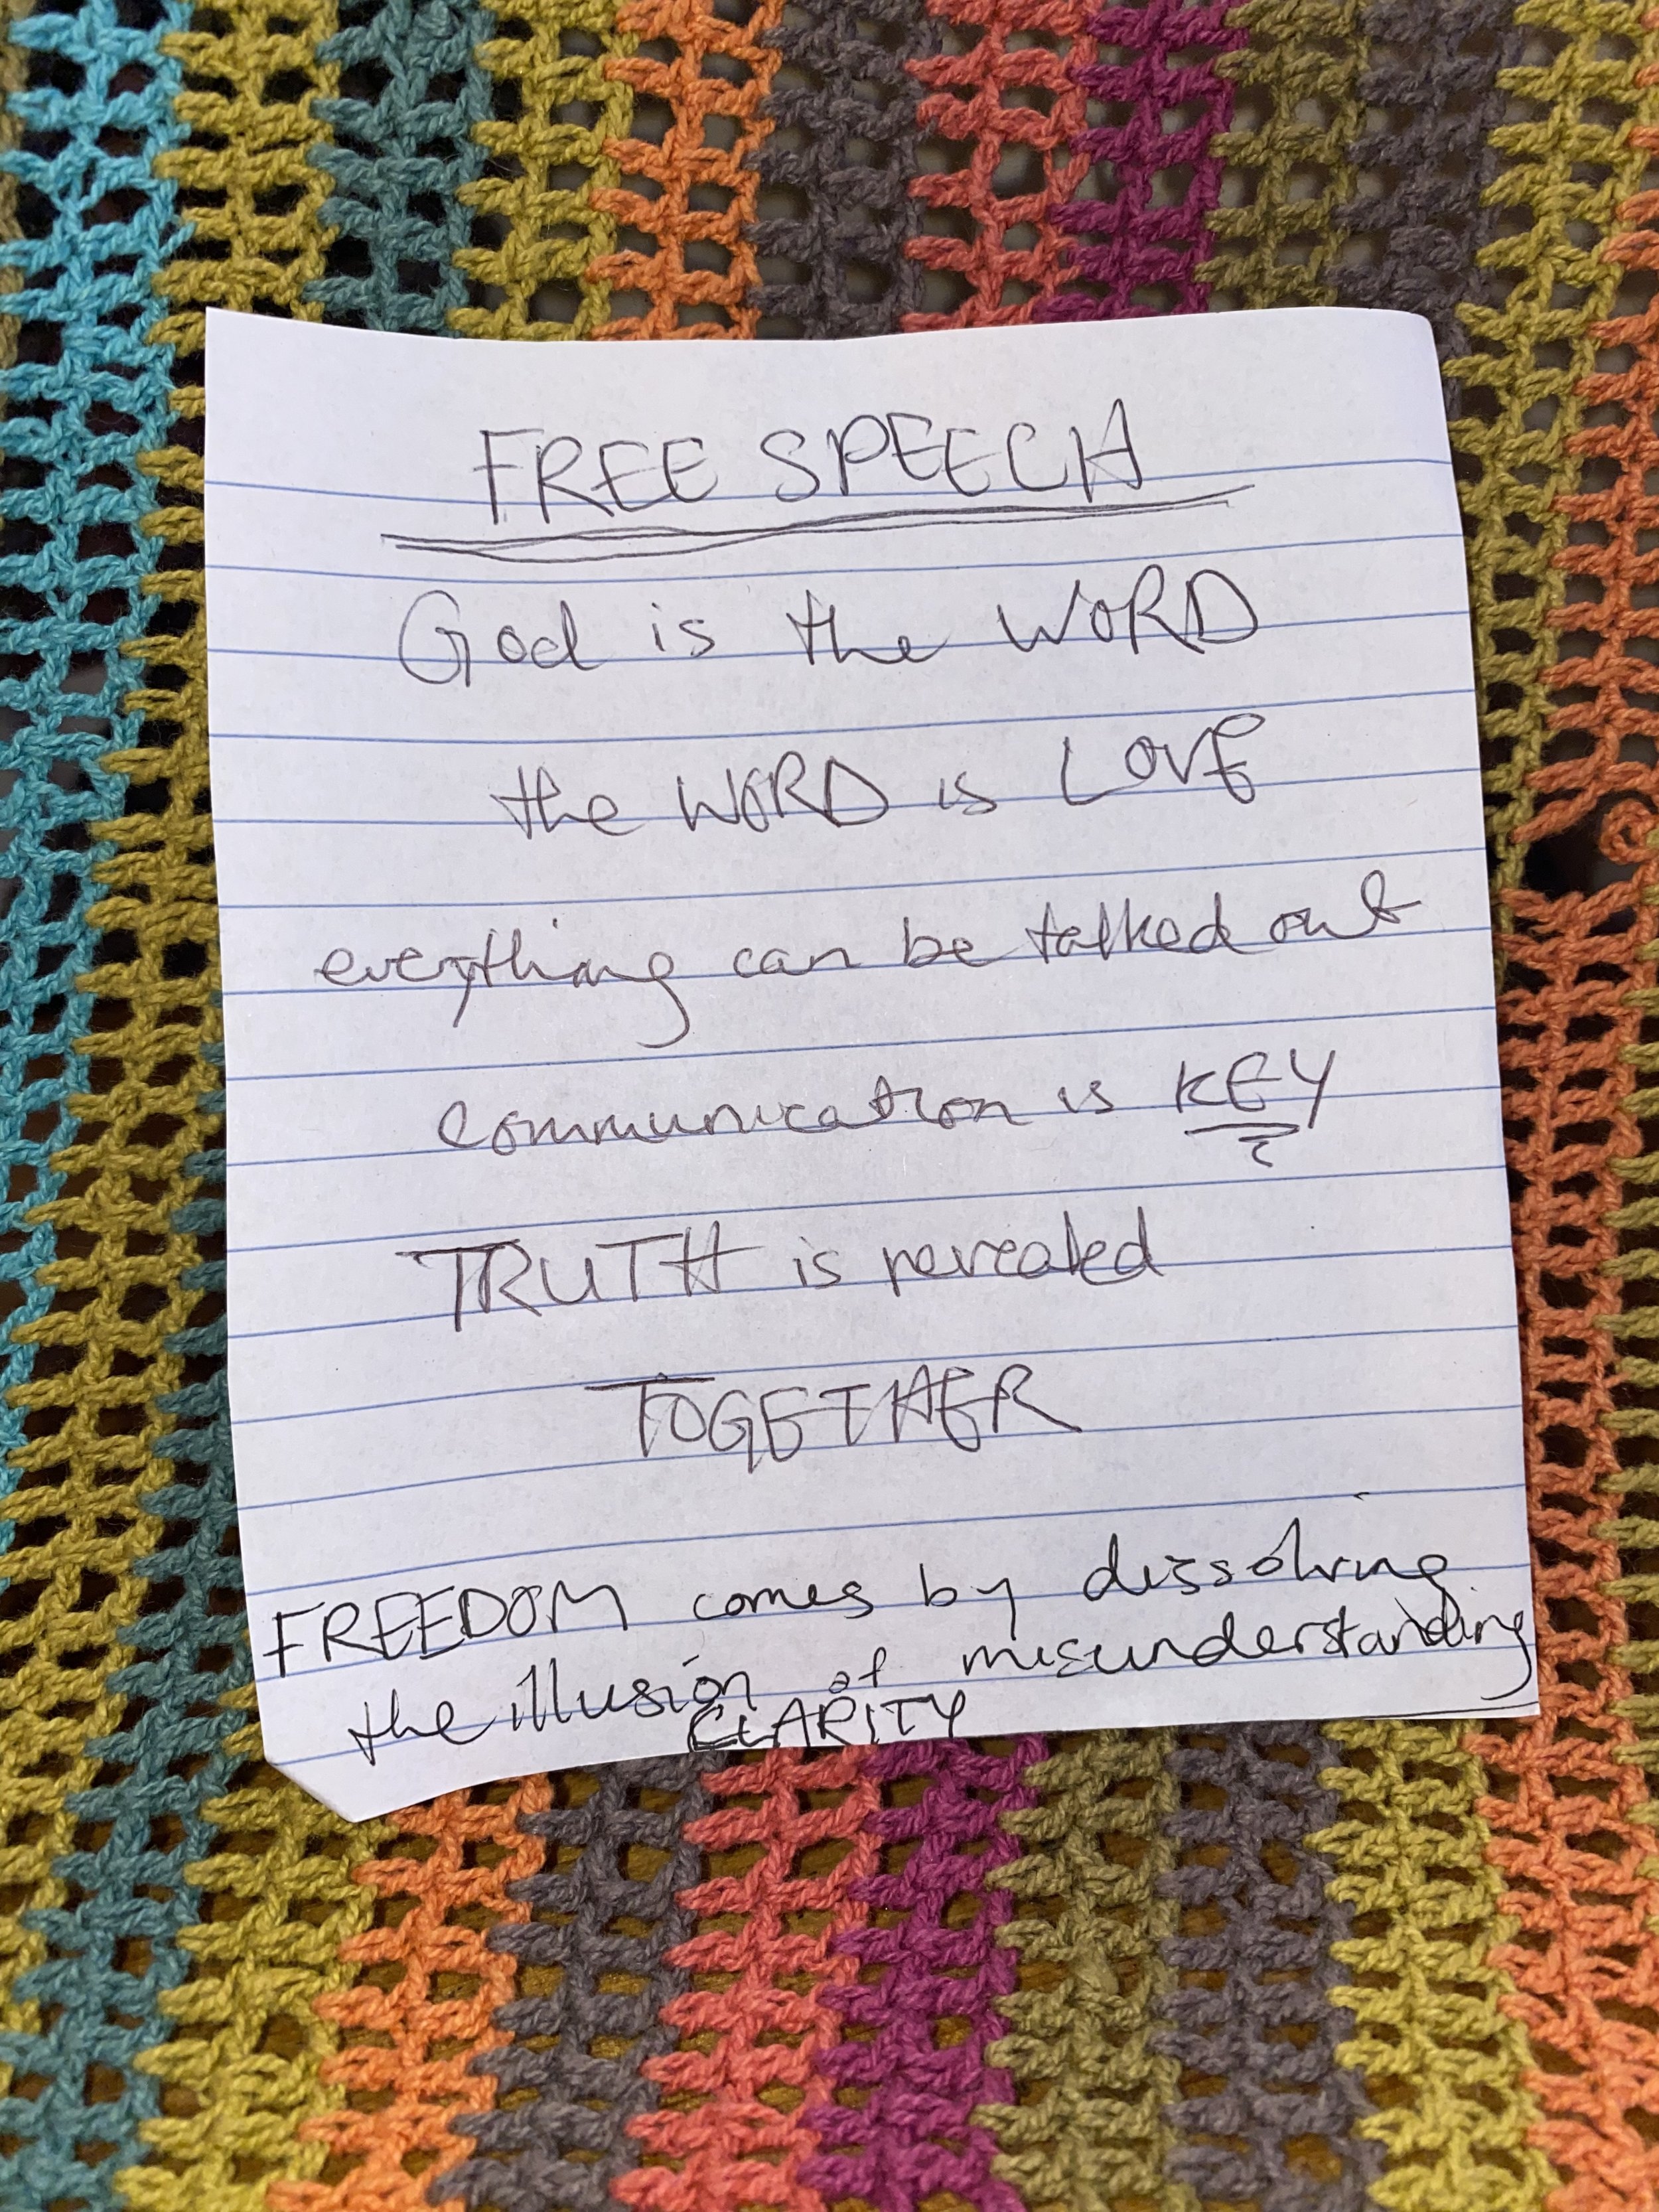 FREE SPEECH
God is the WORD
the WORD is LOVE
everything can be talked out
communication is KEY
TRUTH is revealed
TOGETHER
FREEDOM comes by dissolving
the illusion of misunderstanding
CLARITY